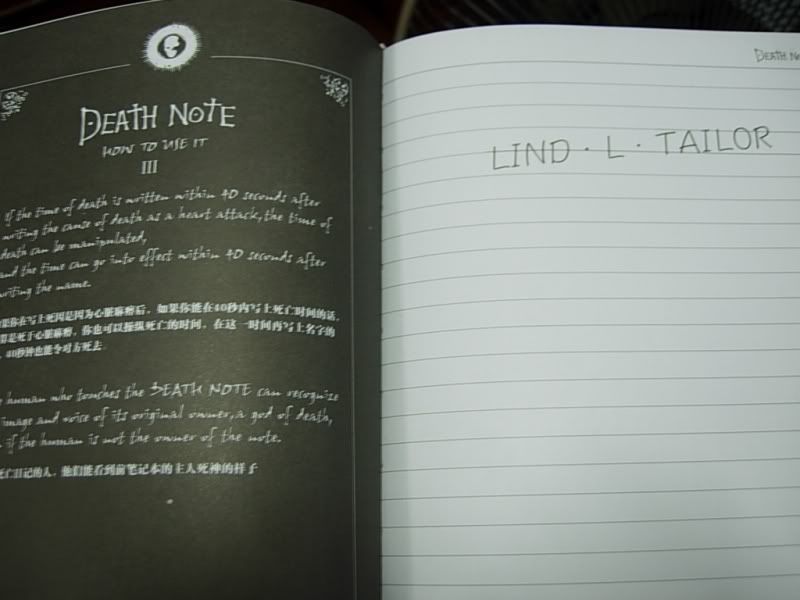 DEATH NOTE
HOW TO USE IT
III
If the time of death is written within 40 seconds after
writing the cause of death as a heart attack, the time of
death can be manipulated,
and the time can go into effect within 40 seconds after
writing the name.
果你在写上死因是因为心脏麻痹后，如果你能在40秒内写上死亡时间的话，
是死于心脏麻痹，你也可以操纵死亡的时间，在这一时间再写上名字的
，40秒钟也能令对方死去
human who touches the DEATH NOTE can recognize
image and voice of its original owner, a god of death,
if the human is not the owner of the note.
死亡日记的人，他们能看到前笔记本的主人死神的样子
DEATH
LIND · L · TAILOR